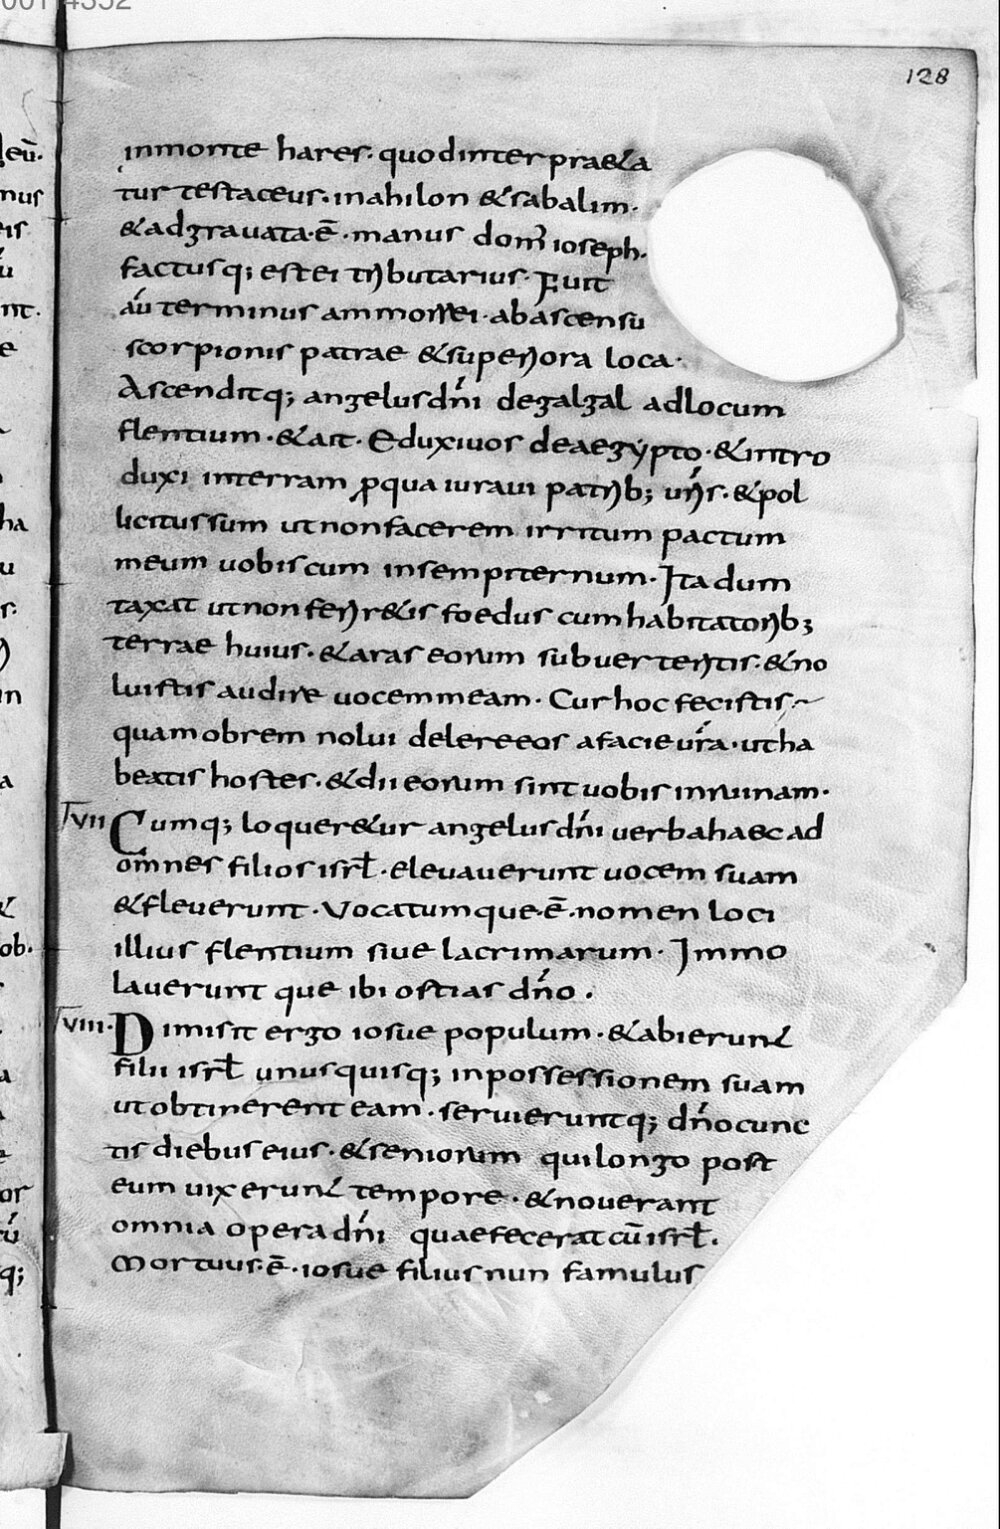 00174352
128
inmonte hares· quodinterprae&a
tur testaceus· inahilon &sabalim·
&adgravata·ē· manus dom̄ ioseph·
factusq; estei tributarius· Fuit
aū terminus ammorrei· abascensu
scorpionis petrae &superiora loca·
Ascenditq; angelusdn̄i degalgal adlocum
flentium· &ait· Eduxiuos deaegẏpto· &intro
duxi interram ꝓqua iuraui patrib; ur̄is· &pol
licitussum utnonfacerem irritum pactum
meum uobiscum insempiternum· Ita dum
taxat utnonferir&is foedus cumhabitatorib;
terrae huius· &aras eorum subuerteritis· &no
luistis audire uocemmeam· Cur hoc fecistis
quamobrem nolui delereeos afacieur̄a· utha
beatis hostes· &dii eorum sint uobis inruinam·
VII Cumq; loquer&ur angelusdn̄i uerbahaec ad
om̄nes filios isrł· eleuauerunt uocem suam
&fleuerunt· Vocatumque·ē· nomen loci
illius flentium siue lacrimarum· Immo
lauerunt que ibi ostias dn̄o·
VIII· Dimisit ergo iosue populum· &abierunt
filii isrł unusquisq; inpossessionem suam
utobtinerent eam· seruieruntq; dn̄ocunc
tis diebus eius· &seniorum quilongo post
eum uixerunt tempore· &nouerant
omnia operadn̄i quaefecerat cūisrł·
Mortuus·ē· iosue filiusnun famulus